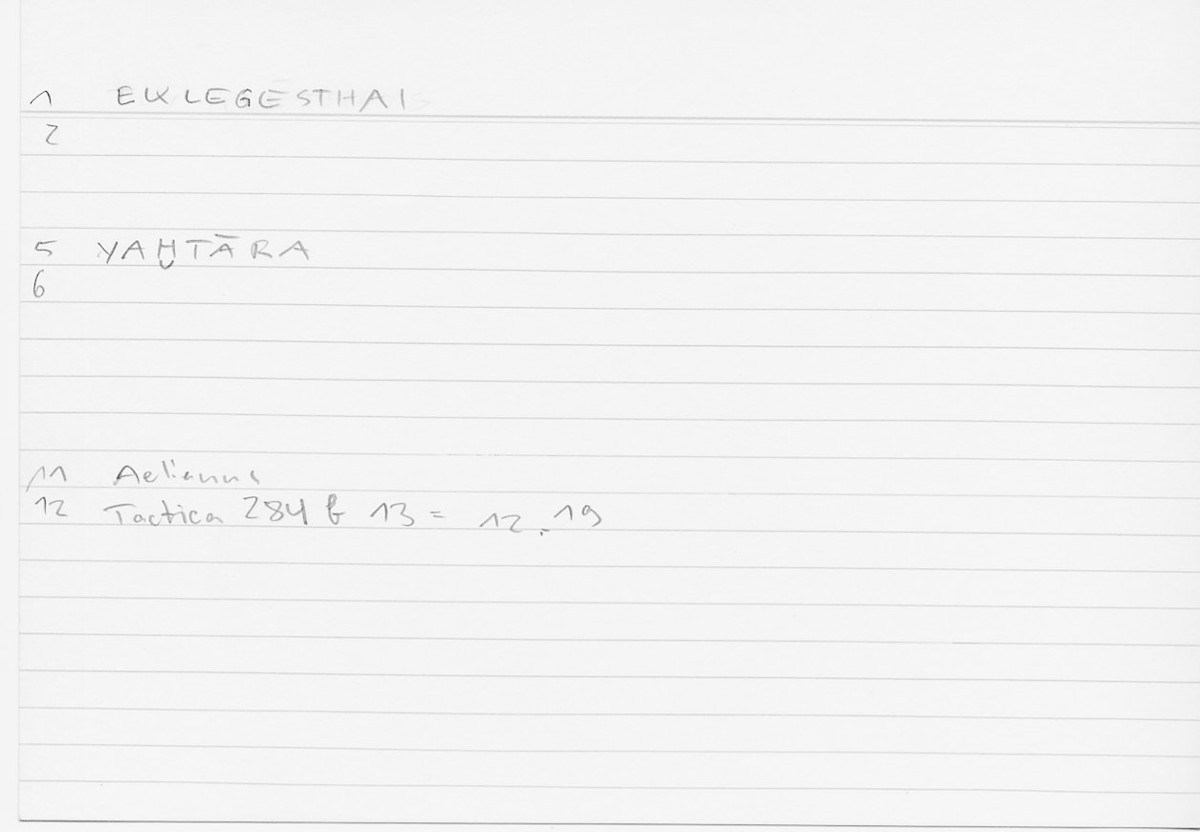 1 EKLEGESTHAI
2
5 YAḪTĀRA
6
11 Aelianus
12 Tactica 284 b 13 = 12.19